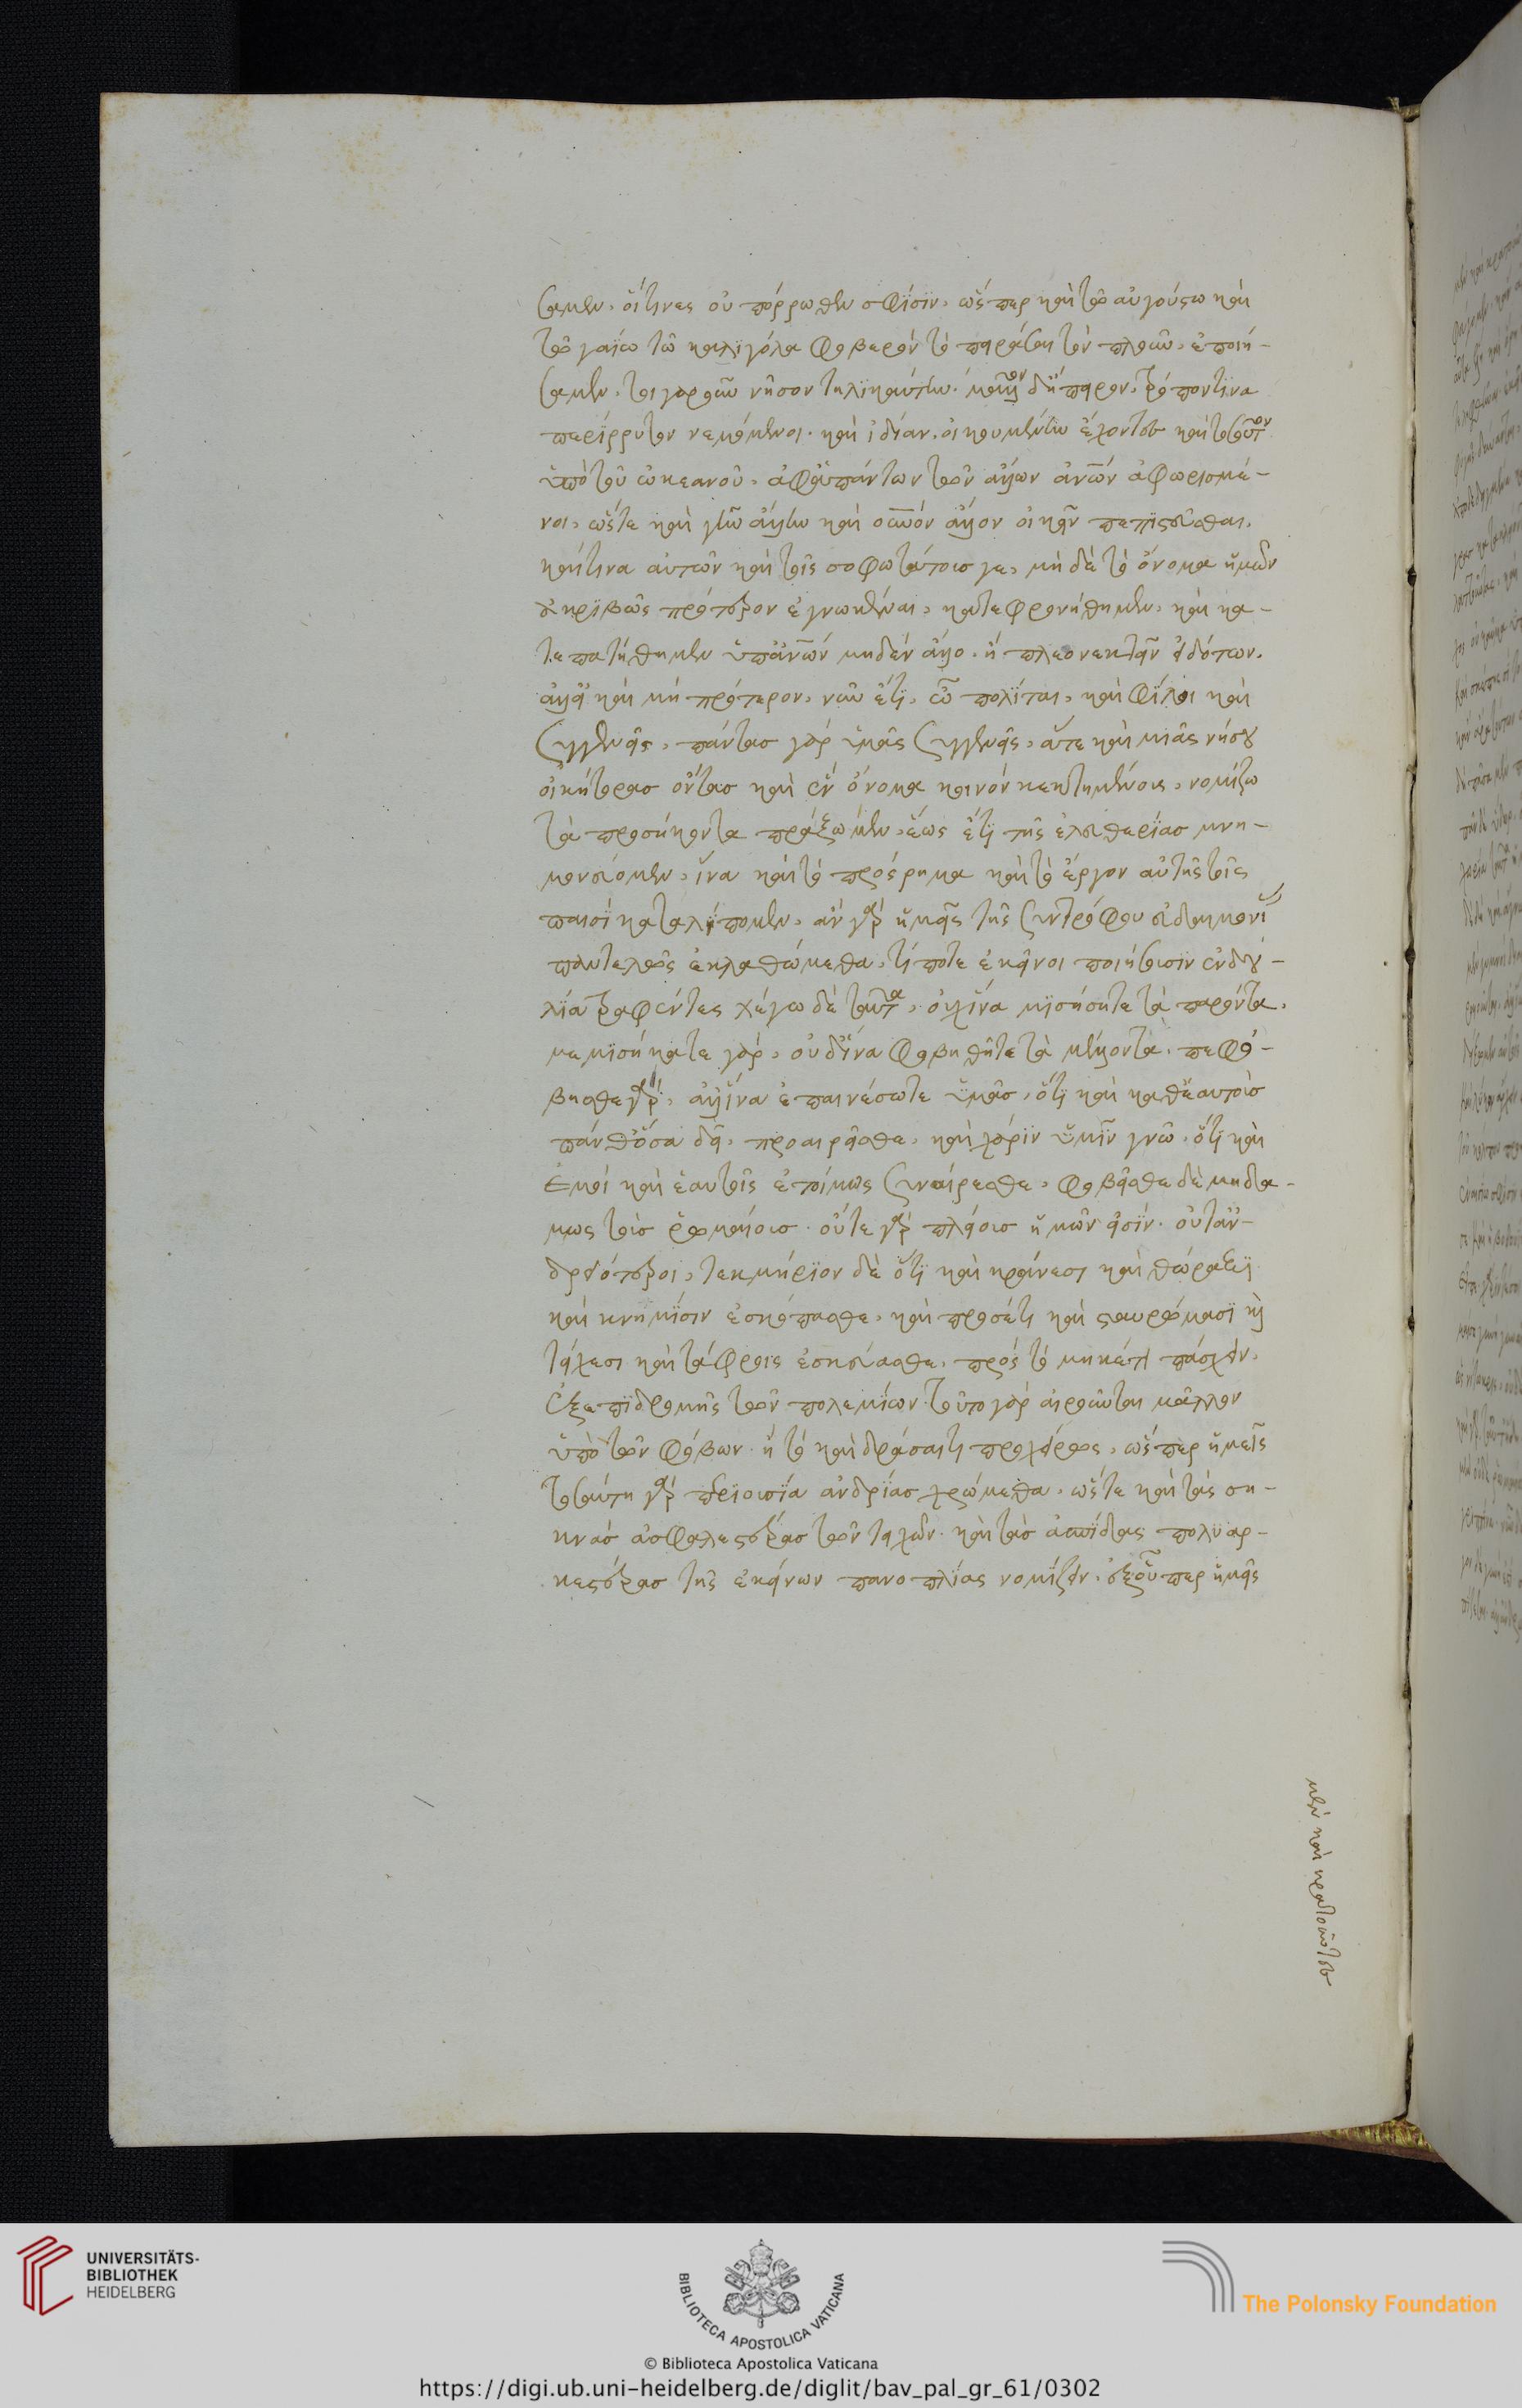 σαμεν. οἵτινες οὐ πόρρωθεν σφίσϊν. ὥσπερ καὶ τῷ αὐγούστω καὶ
τῷ γαΐω τῶ καλϊγόλα φοβερὸν τὸ πειρᾶσαι τὸν πλοῦν. ἐποιή-
σαμεν. τοιγαροῦν νῆσον τηλϊκαύτην. μᾶλλον δ' ἤπειρον. τρόπον τϊνα
περίρρυτον νεμόμενοι. καὶ ἰδίαν. οἰκουμένην ἔχοντες καὶ τοσοῦτον
ὑπὸ τοῦ ὠκεανοῦ. ἀφ' ἁπάντων τῶν ἄλλων ἀνων ἀφωρισμέ-
νοι. ὥστε καὶ γῆν ἄλλην καὶ οὐνὸν ἄλλον οἰκεῖν πεπιστεῦσθαι.
καί τινα αὐτῶν καὶ τοῖς σοφωτάτοισ γε. μὴ δὲ τὸ ὄνομα ἡμῶν
ἀκριβῶς πρότερον ἐγνωκέναι. κατεφρονήθημεν. καὶ κα-
τεπατήθημεν ὑπ' ἀνων μηδὲν ἄλλο. ἢ πλεονεκτεῖν εἰδότων.
ἀλλ' εἰ καὶ μὴ πρότερον. νῦν ἔτϊ. ὦ πολῖται. καὶ φίλοι καὶ
συγγενεῖς. πάντασ γὰρ ὑμᾶς συγγενεῖς. ἅτε καὶ μιᾶς νήσου
οἰκήτορασ ὄντασ καὶ ἓν ὄνομα κοινὸν κεκτημένους. νομίζω
τὰ προσήκοντα πράξωμεν. ἕως ἔτϊ τῆς ἐλευθερίασ μνη-
μονεύομεν. ἵνα καὶ τὸ πρόσρημα καὶ τὸ ἔργον αὐτῆς τοῖς
παισὶ καταλίπομεν. ἂν γὰρ ἡμεῖς τῆς συντρόφου εὐδαιμονί
παντελῶς ἐκλαθώμεθα. τί ποτε ἐκεῖνοι ποιήσωσιν ἐν δου-
λία τραφέντες λέγω δὲ ταῦτα. οὐχ ἵνα μϊσήσητε τὰ παρόντα.
μεμισήκατε γάρ. οὐδ' ἵνα φοβηθῆτε τὰ μέλλοντα. πεφό-
βησθε γάρ. ἀλλ' ἵνα ἐπαινέσωτε ὑμᾶσ. ὅτϊ καὶ καθ' ἑαυτοὺσ
πάνθ' ὅσα δεῖ. προαιρεῖσθε. καὶ χάριν ὑμῖν γνῶ. ὅτϊ καὶ
ἐμοί καὶ ἑαυτοῖς ἑτοίμως συναίρεσθε. φοβεῖσθε δὲ μηδα-
μως τοὺσ ῥωμαίουσ. οὔτε γὰρ πλείουσ ἡμῶν εἰσϊν. οὔτ' ἀν-
δρειότεροι. τεκμήριον δὲ ὅτϊ καὶ κράνεσι καὶ θώραξϊ
καὶ κνημῖσιν ἐσκόπασθε. καὶ προσέτι καὶ σταυρώμασϊ κ̀
τείχεσι καὶ τάφροις ἐσκεύασθε. πρὸς τὸ μηκέτι πάσχειν.
ἐξ ἐπϊδρομῆς τῶν πολεμίων. τοῦτο γὰρ αἱροῦνται μᾶλλον
ὑπὸ τῶν φόβων. ἢ τὸ καὶ δρᾶσαί τι προχείρως. ὥσπερ ἡμεῖς
τοσαύτη γὰρ περϊουσία ἀνδρίασ χρώμεθα. ὥστε καὶ τὰς σκη-
κνὰσ ἀσφαλεστέρασ τῶν τειχῶν. καὶ τὰσ ἀσπίδας πολυαρ-
κεστέρασ τῆς ἐκείνων πανοπλίας νομίζειν. ἐξ οὗπερ ἡμεῖς
μὲν καὶ κρατοῦντες
UNIVERSITÄTS-
BIBLIOTHEK
HEIDELBERG
BIBLIOTECA APOSTOLICA VATICANA
The Polonsky Foundation
© Biblioteca Apostolica Vaticana
https://digi.ub.uni-heidelberg.de/diglit/bav_pal_gr_61/0302